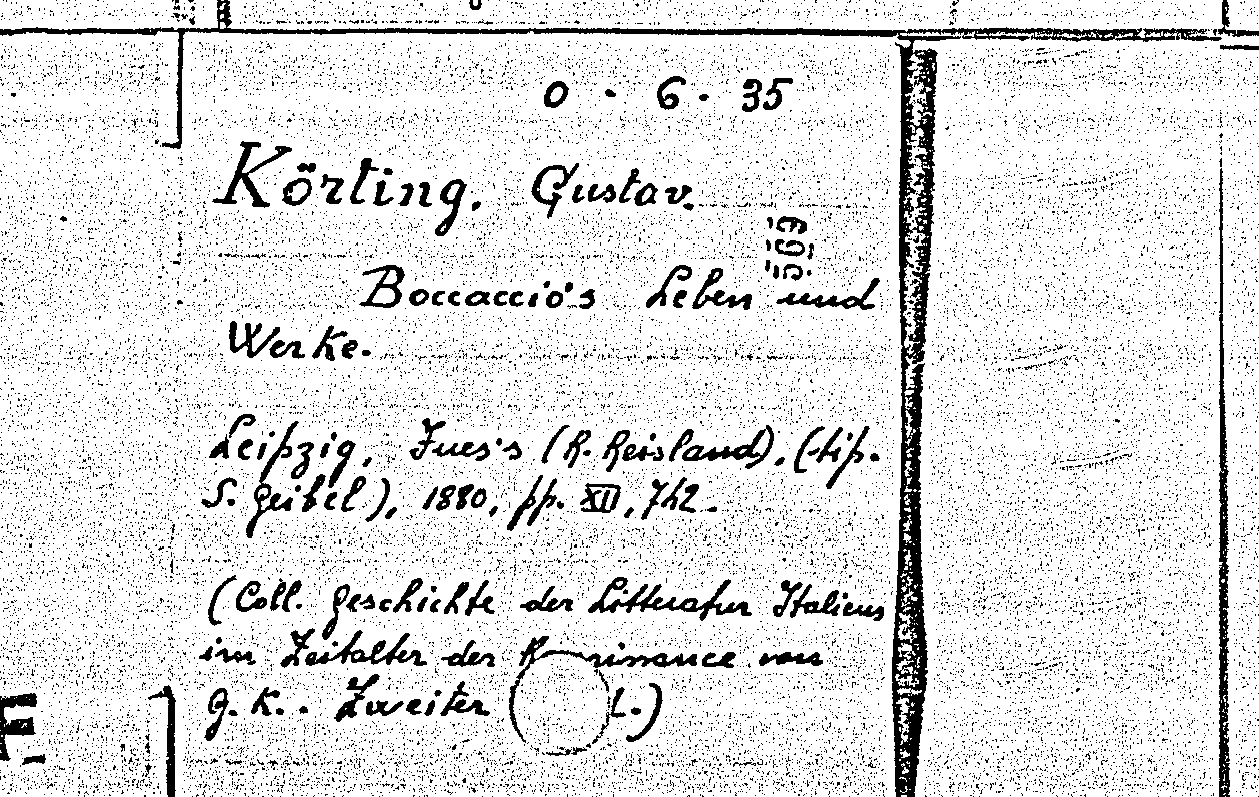 0 · 6 · 35
Körting, Gustav.
569
Boccaccio's Leben und
Werke.
Leipzig, Fues's (R. Reisland), (tip.
S. Geibel), 1880, pp. XII, 742.
(Coll. Geschichte der Litteratur Italiens
im Zeitalter der von
G. K.. Zweiter